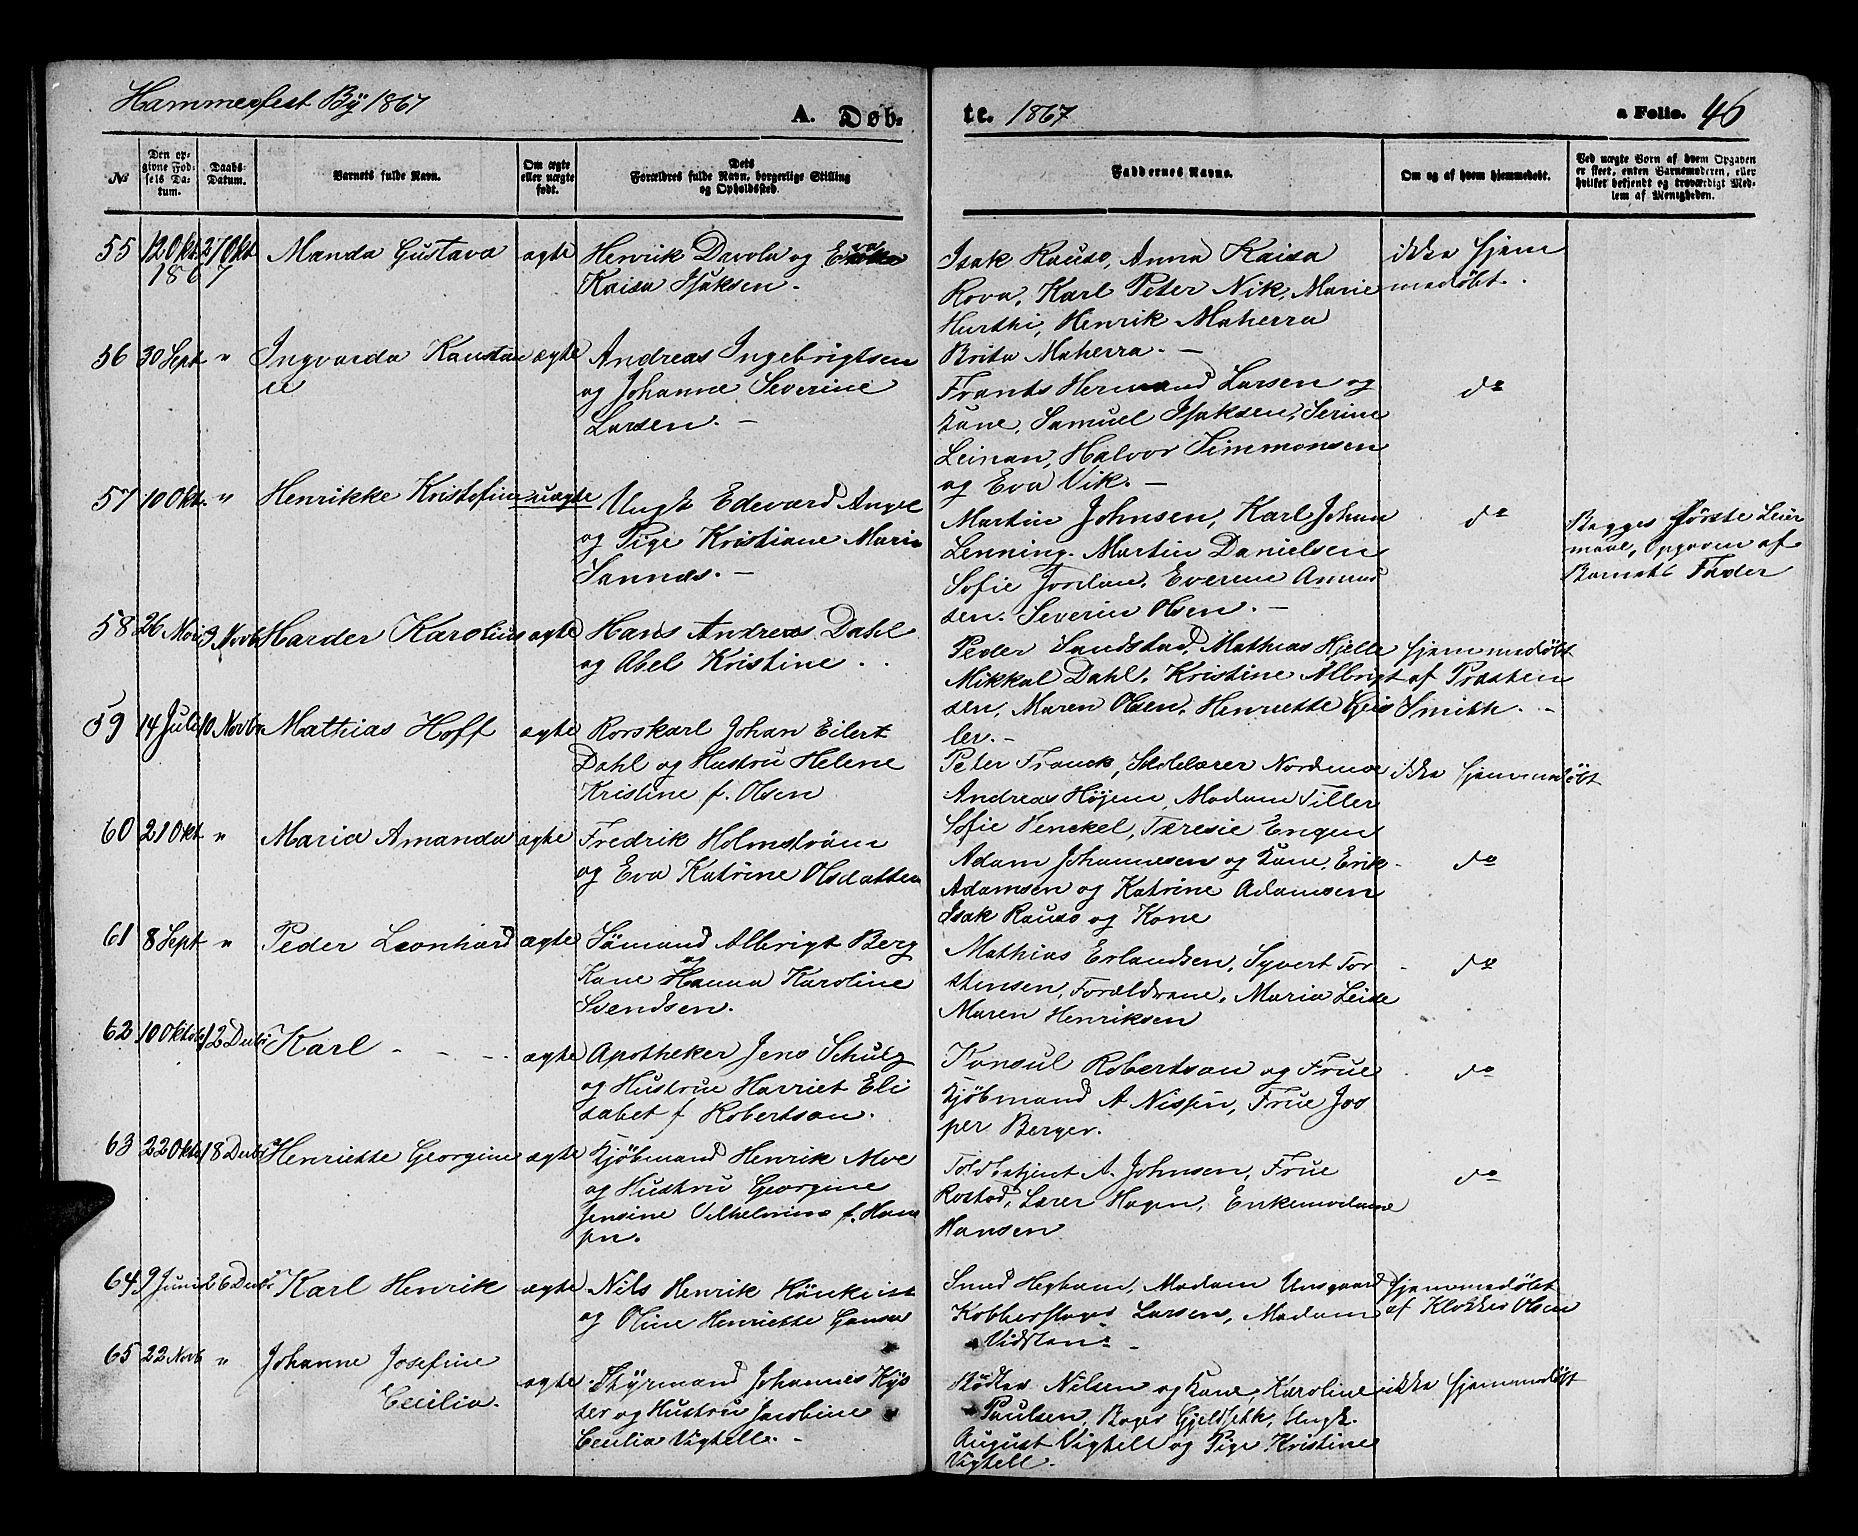 Hammerfest By 1867
A. Døb-
te. 1867
a Folio. 46
No
Den op-
givne Fød-
sels Da-
tum.
Daabs-
Datum.
Barnets fulde Navn.
Om ægte
eller uægte
født.
Dets
Forældres fulde Navn, borgerlige Stilling
og Opholdssted.
Faddernes Navne.
Om og af hvem hjemmedøbt.
Ved uægte Børn af hvem Opgaven
er skeet, enten Barnemoderen, eller
hvilket bekjendt og troværdigt Med-
lem af Menigheden.
55 12 Okt. 27 Okt Manda Gustava ægte Henrik Davola og Eva
1867
Kaisa Isaksen.
Isak Rauso, Anna Kaisa
Rova, Karl Peter Nik, Marie
Hurthi, Henrik Maherra
Brita Maherra. —
ikke hjem
medøbt.
56 30 Sept " Ingvarda Konstan ægte Andreas Ingebrigtsen
og Johanne Severine
Larsen. —
Frants Hermand Larsen og
Kone, Samuel Isaksen, Serine
Leinan, Halvor Simmonsen
og Eva Vik. —
do
57 10 Okt. " Henrikke Kristofine uægte Ungk Edevard Angel
og Pige Kristiane Marie
Sannæs. —
Martin Johnsen, Karl Johan
Lenning. Martin Danielsen
Sofie Jordan, Everine Amund
sen. Severin Olsen. —
do
Begges første Leier
maal, Opgaven af
Barnets Fader
58 26 Mai 3 Novb Harder Karolius ægte Hans Andreas Dahl
og Abel Kristine . .
Peder Sandstad, Mathias Hjelle
Mikkal Dahl, Kristine Albrigt
sen, Maren Olsen, Henriette Gjes
ler. —
hjemmedøbt
af Præsten
Smith. -
59 14 Juli 10 Novb Mathias Hoff ægte Rorskarl Johan Eilert
Dahl og Hustru Helene
Kristine f. Olsen
Peter Franck, Skolelærer Nordmoe
Andreas Højem, Madam Tiller
Sofie Venckel, Teresie Engen
ikke hjemmedøbt
60 21 Okt " Maria Amanda ægte Fredrik Holmstrøm
og Eva Katrine Olsdatter
Adam Johannesen og Kone, Erik
Adamsen og Katrine Adamsen
Isak Rauso og Kone
do
61 8 Sept " Peder Leonhard ægte Sømand Albrigt Berg
og
Kone Hanna Karoline
Svendsen.
Mathias Erlandsen, Syvert Tor
stensen, Forældrene, Maria Leide
Maren Henriksen
do
62 10 Oktob 12 Decbr Karl - - - ægte Apotheker Jens Schulz
og Hustrue Harriet Eli
sabet f Robertson.
Konsul Robertson og Frue
Kjøbmand A Nissen, Frue Jes
per Berger.
do
63 22 Oktb 18 Decbr Henriette Georgine ægte Kjøbmand Henrik Moe
og Hustru Georgine
Jensine Vilhelmine f. Han
sen.
Toldbetjent A. Johnsen, Frue
Rostad, Lærer Hagen, Enkemadame
Hansen
do
64 9 Juni 26 Decbr Karl Henrik ægte Nils Henrik Rönkvist
og Oline Henriette Hansen
Smed Hegham, Madam Unsgaard
Kobberslager Larsen, Madam
Vidsten
hjemmedøbt
af Klokker Olsen
65 22 Novb " Johanne Josefine
Cecilia.
ægte Styrmand Johannes Kys
ter og Hustru Jacobine
Cecilia Vigtell. —
Skødlex Nilsen og Kone, Karoline
Paulsen, Bager Gjeldseth, Ungk.
August Vigtell og Pige Kristine
Vigtell.
ikke hjemmedøbt